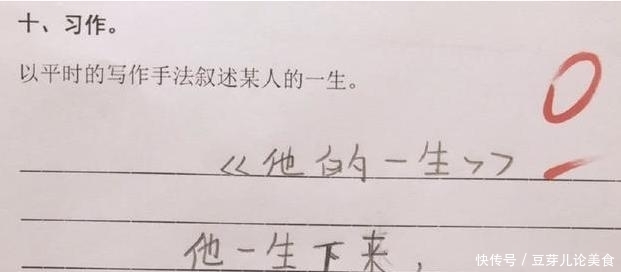 十、习作。
以平时的写作手法叙述某人的一生。
0
《他的一生》
他一生下来，
快传号/豆芽儿论美食